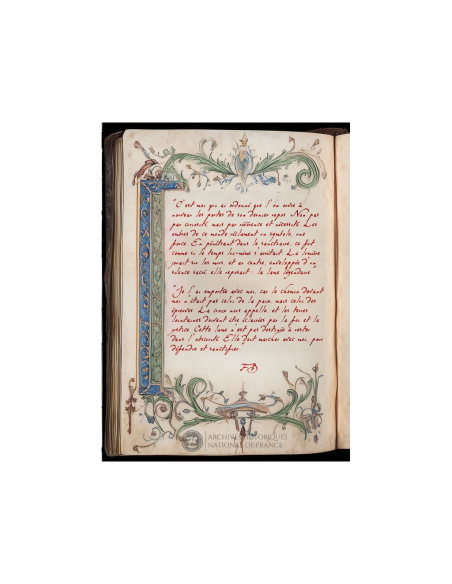 "C'est moi qui ai ordonné que l'on ouvre à
nouveau les portes de son dernier repos. Non pas
par curiosité, mais par révérence et nécessité. Les
ombres de ce monde réclament un symbole, une
force. En pénétrant dans le sanctuaire, ce fut
comme si le temps lui-même s'arrêtait. La lumière
jouait sur les murs, et au centre, enveloppée d'un
silence sacré, elle reposait : la lame légendaire.
"Je l'ai emportée avec moi, car le chemin devant
moi n'était pas celui de la paix, mais celui des
épreuves. La croix nous appelle, et les terres
lointaines doivent être éclairées par la foi et la
justice. Cette lame n'est pas destinée à rester
dans l'obscurité. Elle doit marcher avec moi, pour
défendre et sanctifier.
ARCHIVES HISTORIQUES
NATIONAL DE FRANCE